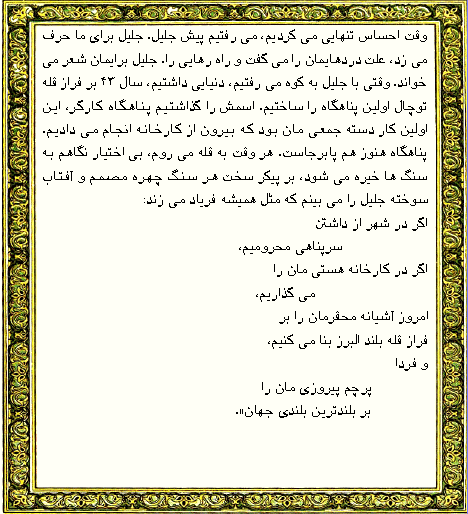 وقت احساس تنهایی می کردیم، می رفتیم پیش جلیل. جلیل برای ما حرف
می زد، علت دردهایمان را می گفت و راه رهایی را. جلیل برایمان شعر می
خواند. وقتی با جلیل به کوه می رفتیم، دنیایی داشتیم، سال ۴۳ بر فراز قله
توچال اولین پناهگاه را ساختیم. اسمش را گذاشتیم پناهگاه کارگر، این
اولین کار دسته جمعی مان بود که بیرون از کارخانه انجام می دادیم.
پناهگاه هنوز هم پابرجاست. هر وقت به قله می روم، بی اختیار نگاهم به
سنگ ها خیره می شود، بر پیکر سخت هر سنگ چهره مصمم و آفتاب
سوخته جلیل را می بینم که مثل همیشه فریاد می زند:
اگر در شهر از داشتن
سرپناهی محرومیم،
اگر در کارخانه هستی مان را
می گذاریم،
امروز آشیانه محقرمان را بر
فراز قله بلند البرز بنا می کنیم،
و فردا
پرچم پیروزی مان را
بر بلندترین بلندی جهان».